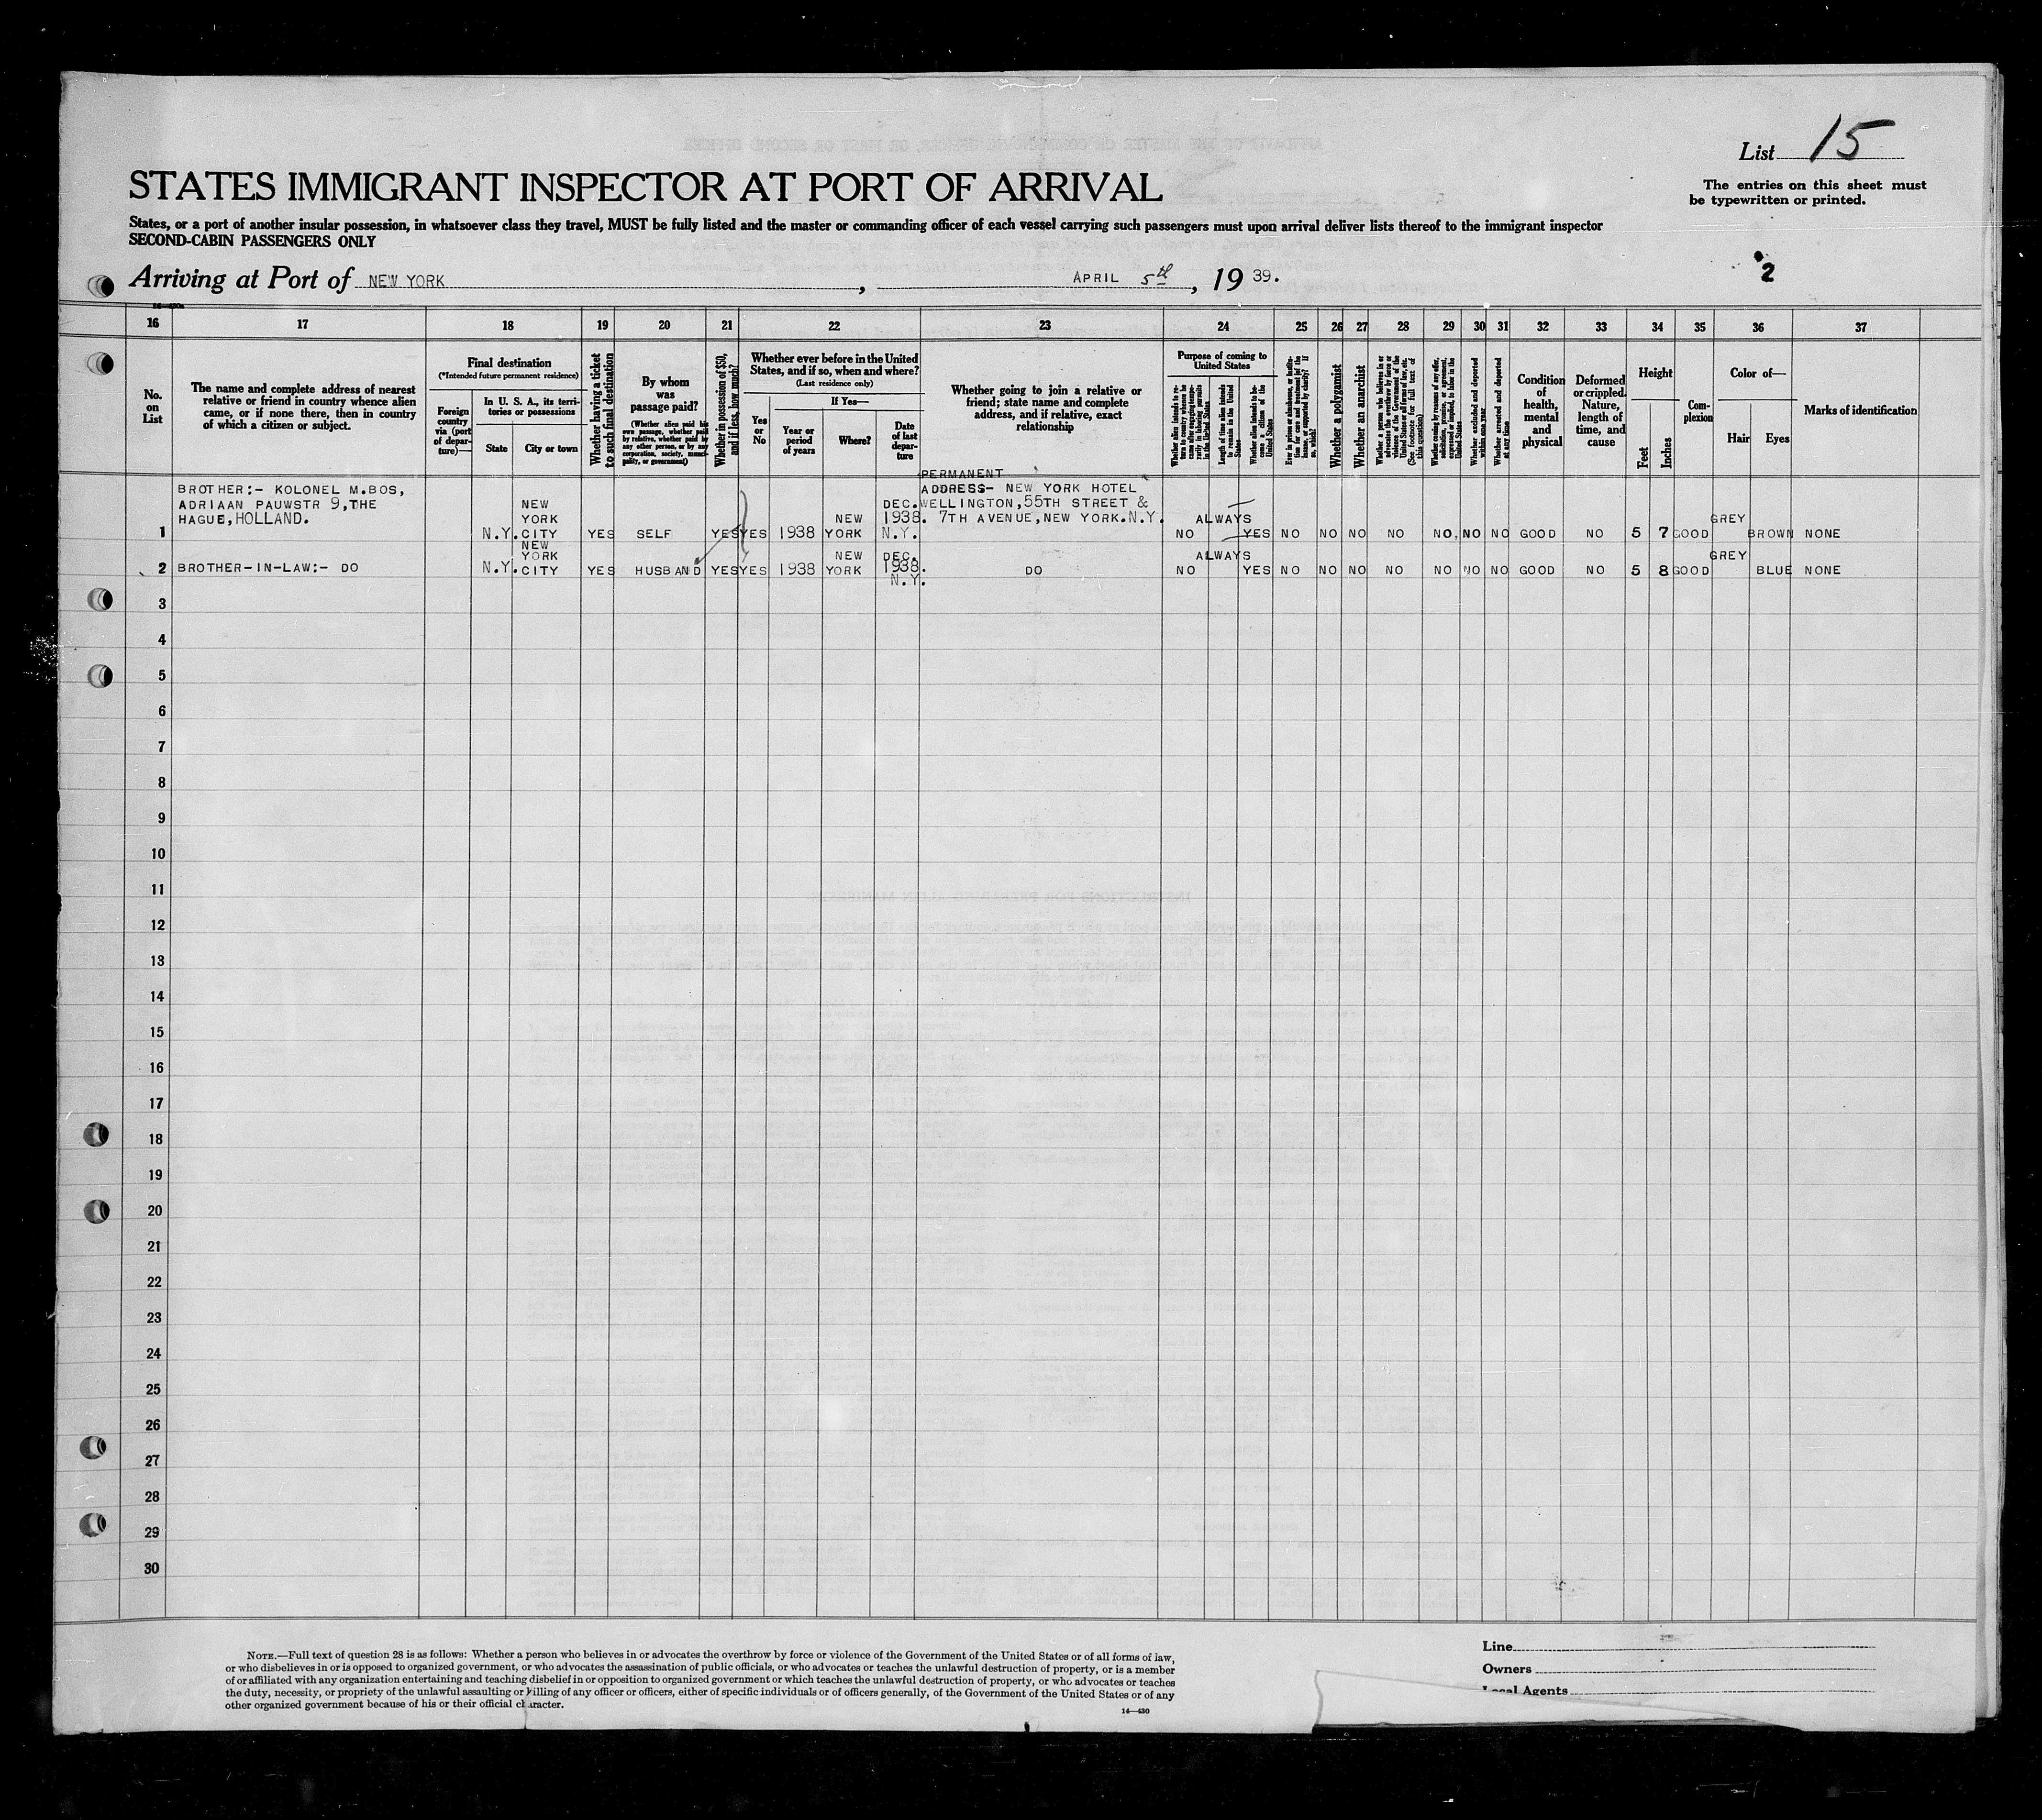 List 15
The entries on this sheet must
be typewritten or printed.
STATES IMMIGRANT INSPECTOR AT PORT OF ARRIVAL
States, or a port of another insular possession, in whatsoever class they travel, MUST be fully listed and the master or commanding officer of each vessel carrying such passengers must upon arrival deliver lists thereof to the immigrant inspector
SECOND-CABIN PASSENGERS ONLY
2
Arriving at Port of NEW YORK, APRIL 5th, 19 39.
16 17 18 19 20 21 22 23 24 25 26 27 28 29 30 31 32 33 34 35 36 37
No.
on
List
The name and complete address of nearest
relative or friend in country whence alien
came, or if none there, then in country
of which a citizen or subject.
Final destination
(*Intended future permanent residence)
Foreign
country
via (port
of depar-
ture)—
In U. S. A., its terri-
tories or possessions
State
City or town
Whether having a ticket
to such final destination
By whom
was
passage paid?
(Whether alien paid his
own passage, whether paid
by relative, whether paid by
any other person, or by any
corporation, society, munici-
pality, or government)
Whether in possession of $50,
and if less, how much?
Whether ever before in the United
States, and if so, when and where?
(Last residence only)
Yes
or
No
If Yes—
Year or
period
of years
Where?
Date
of last
depar-
ture
Whether going to join a relative or
friend; state name and complete
address, and if relative, exact
relationship
Purpose of coming to
United States
Length of time alien intends
to remain in the United
States
Whether alien intends to be-
come a citizen of the
United States
Whether a polygamist
Whether an anarchist
Whether arrested and deported
at any time
Condition
of
health,
mental
and
physical
Deformed
or crippled.
Nature,
length of
time, and
cause
Height
Feet
Inches
Com-
plexion
Color of—
Hair
Eyes
Marks of identification
1 BROTHER:- KOLONEL M.BOS,
ADRIAAN PAUWSTR 9,THE
HAGUE,HOLLAND.
N.Y.
NEW
YORK
CITY
YES SELF YES YES 1938
NEW
YORK
DEC.
1938.
N.Y.
PERMANENT
ADDRESS- NEW YORK HOTEL
WELLINGTON,55TH STREET &
7TH AVENUE,NEW YORK.N.Y.
NO ALWAYS YES NO NO NO NO NO, NO NO GOOD NO 5 7 GOOD GREY BROWN NONE
2 BROTHER-IN-LAW:- DO
N.Y.
NEW
YORK
CITY
YES HUSBAND YES YES 1938
NEW
YORK
DEC.
1938.
N.Y.
DO
NO ALWAYS YES NO NO NO NO NO NO NO GOOD NO 5 8 GOOD GREY BLUE NONE
3
4
5
6
7
8
9
10
11
12
13
14
15
16
17
18
19
20
21
22
23
24
25
26
27
28
29
30
NOTE.—Full text of question 28 is as follows: Whether a person who believes in or advocates the overthrow by force or violence of the Government of the United States or of all forms of law,
or who disbelieves in or is opposed to organized government, or who advocates the assassination of public officials, or who advocates or teaches the unlawful destruction of property, or is a member
of or affiliated with any organization entertaining and teaching disbelief in or opposition to organized government or which teaches the unlawful destruction of property, or who advocates or teaches
the duty, necessity, or propriety of the unlawful assaulting or killing of any officer or officers, either of specific individuals or of officers generally, of the Government of the United States or of any
other organized government because of his or their official character.
14—430
Line
Owners
Local Agents